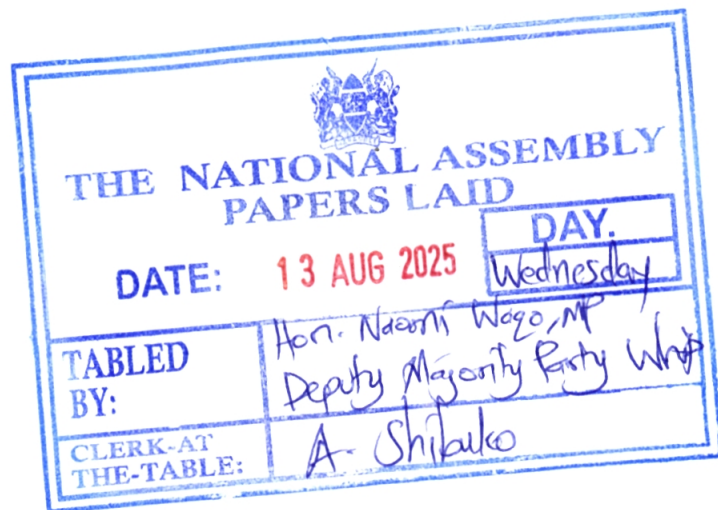 THE NATIONAL ASSEMBLY
PAPERS LAID
DATE: 13 AUG 2025
DAY.
Wednesday
TABLED BY:
Hon. Naomi Waqo, MP
Deputy Majority Party Whip
CLERK-AT THE-TABLE:
A. Shibuko